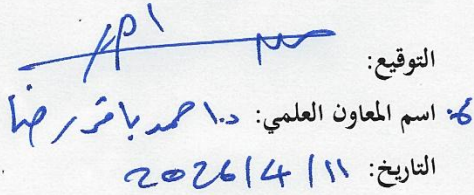 التوقيع:
اسم المعاون العلمي: د. احمد باقر رضا
التاريخ: 2026/4/11